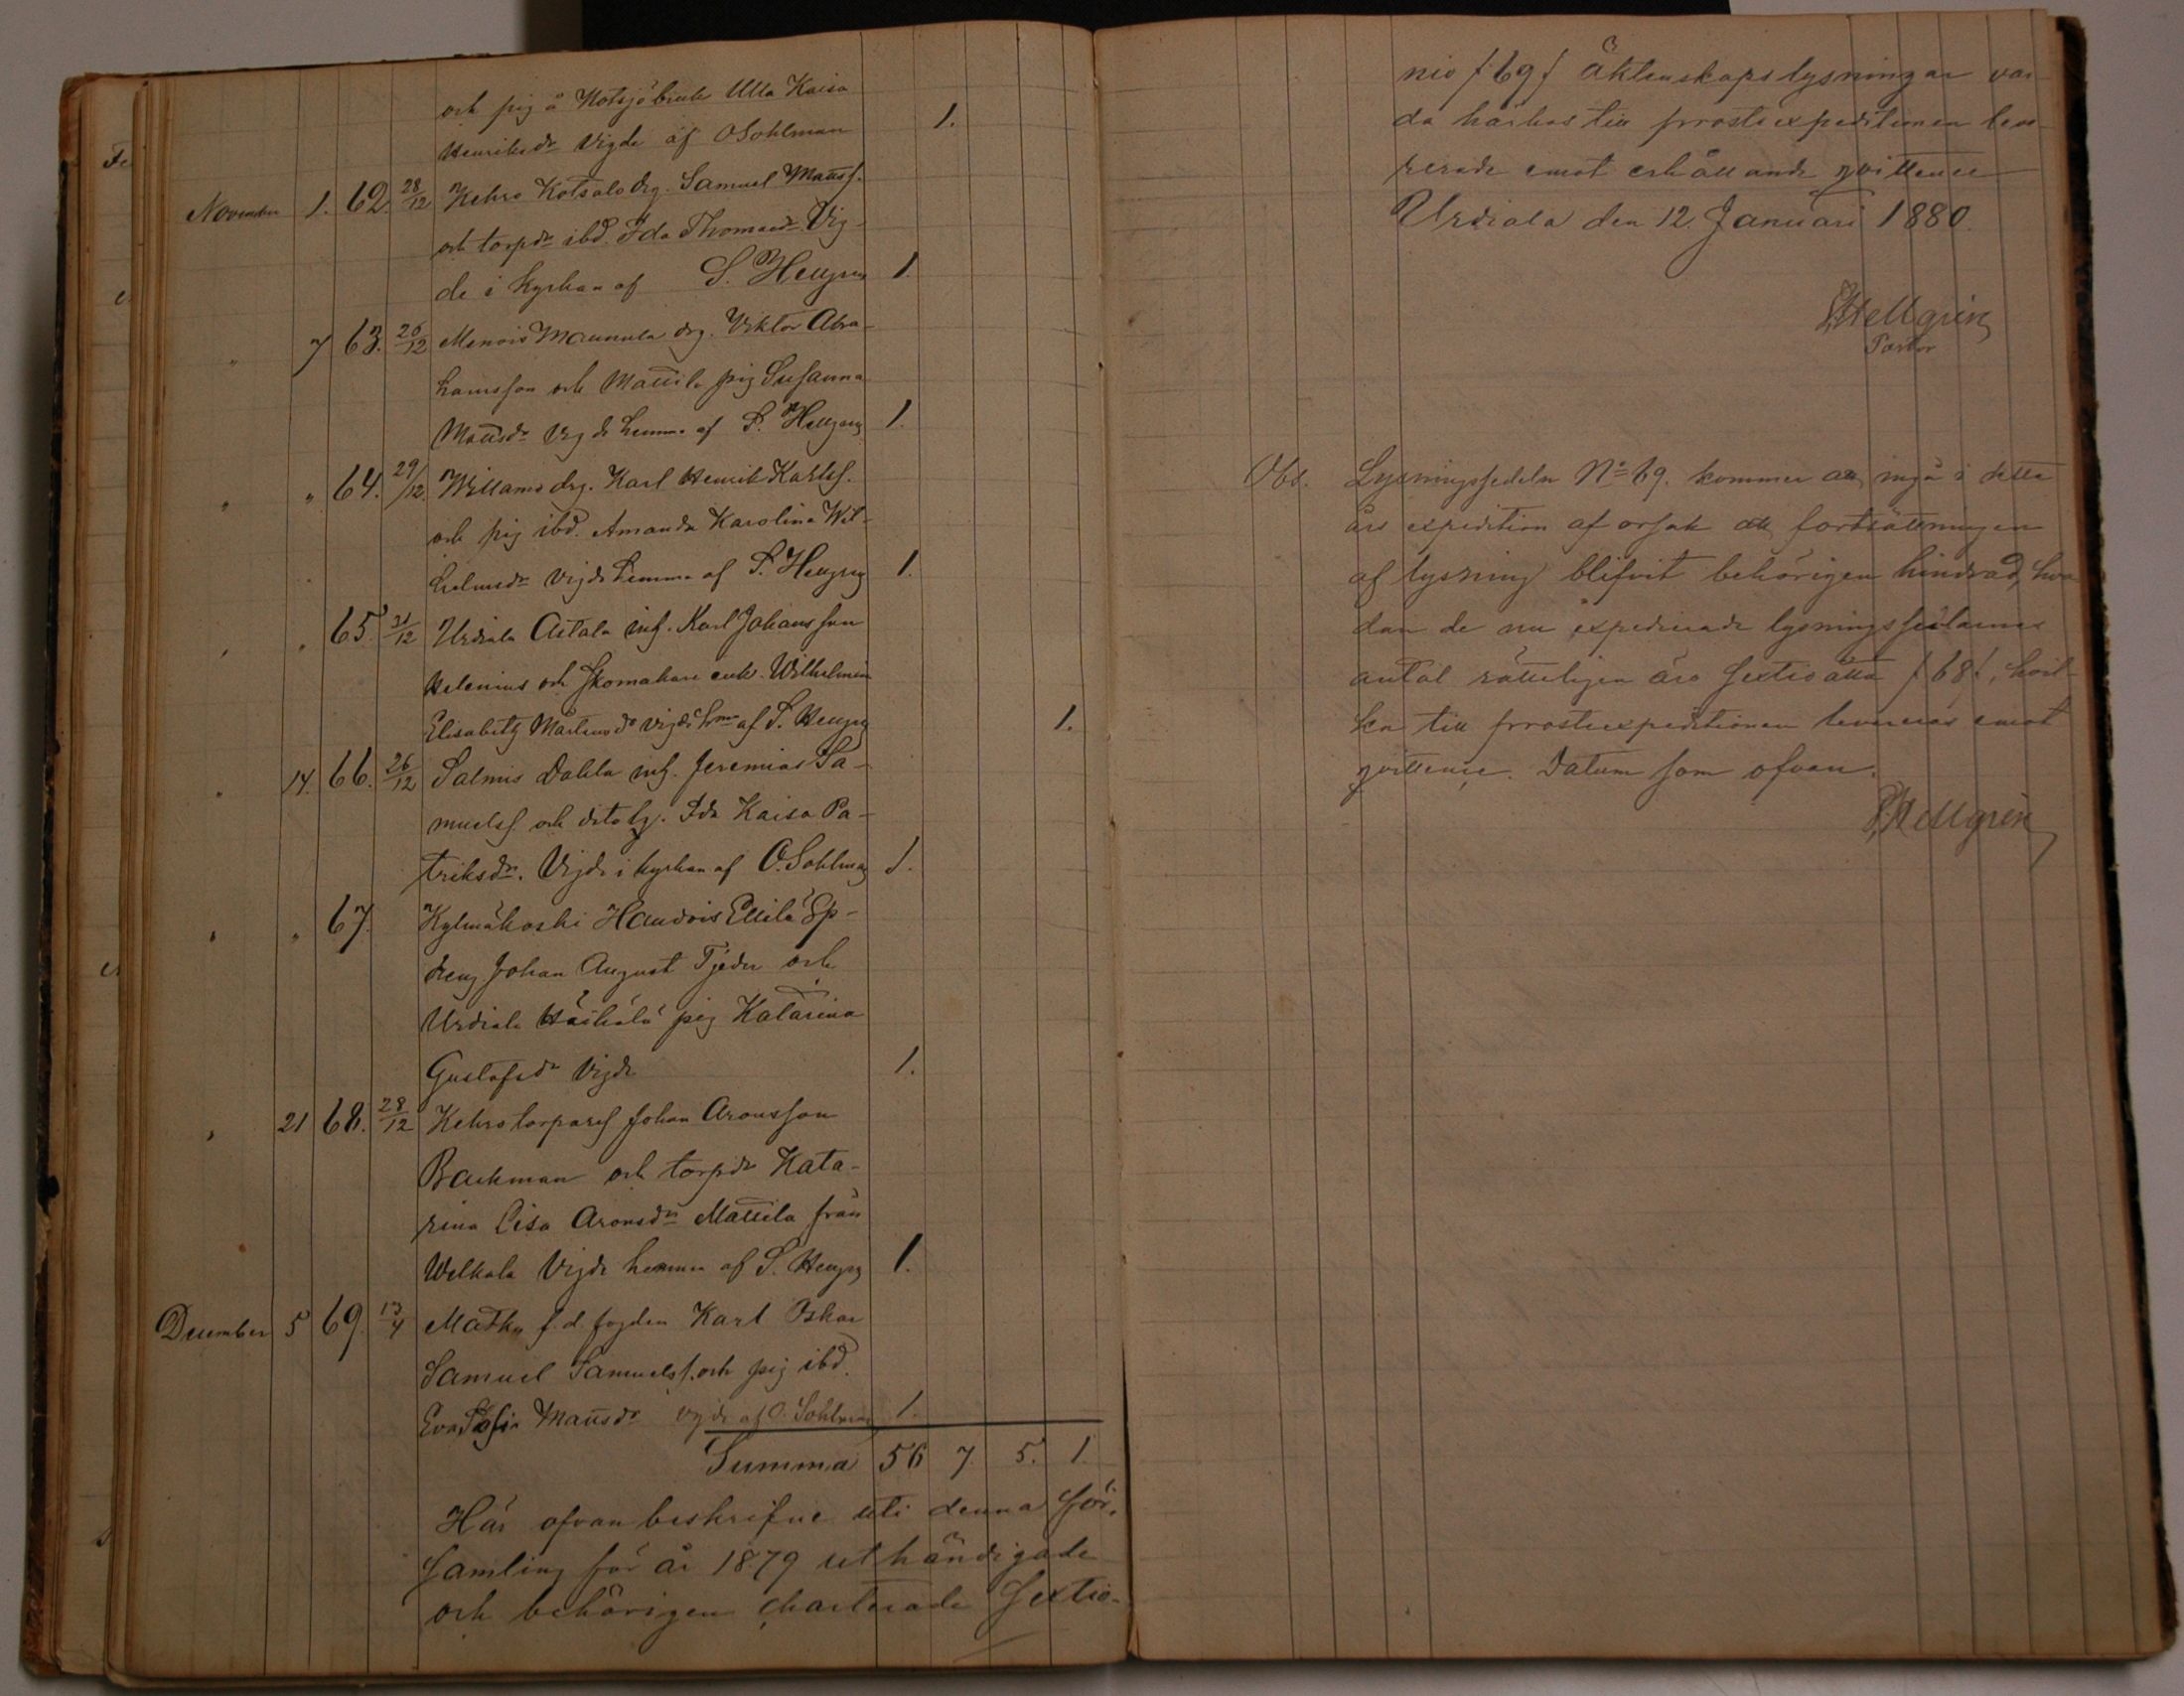 och pig å Notsjö bruk Ulla Kaisa
Henriksdr Vigde af O Sohlman 1.
November 1. 62. 28/12 Kehro Kotsalo drg. Samuel Matts.
och torpdr ibd. Ida Thomasdr Vig-
de i kyrkan af S. Hellgren 1.
" 7 63. 26/12 Menois Maunula drg. Viktor Abra-
hamsson och Mattila pig Susanna
Mattsdr Vigde hemma af S. Hellgren 1.
" " 64. 29/12. Willamo drg. Karl Henrik Karlss.
och pig ibd. Amanda Karolina Wil-
helmsdr Vigde hemma af S. Hellgren 1.
" " 65. 31/12 Urdiala Aitala inh. Karl Johansson
Helenius och skomakare enk. Wilhelmina
Elisabeth Mårtensdr vigde hma af S. Hellgren 1.
" 14. 66. 26/12 Salmis Dahla inh. Jeremias Sa-
muelss och dito Ida Kaisa Pa-
triksdr. Vigde i kyrkan af O. Sohlman 1.
" " 67. Kylmäkoski Haudois Ellilä
dreng Johan August Tjeder och
Urdiala pig Katarina
Gustafsdr Vigde 1.
" 21 68. 28/12 Kehro torpares Johan Aronsson
Backman och torpdr Kata-
rina Lisa Aronsdr Mattila från
Welkala Vigde hemma af S. Hellgren 1.
December 5 69. 13/4 Matku f.d. fogden Karl Oskar
Samuel Samuelss. och pig ibd.
Eva Sofia Mattsdr vigde af O. Sohlman 1.
Summa 56 7. 5. 1.
Här ofvan beskrifne uti denna för-
samling för år 1879 uthändigade
och behörigen charterade sextio-
nio /:69:/ äktenskapslysningar var-
da härhos till prosteexpeditionen leve-
rerade emot erhållande qvittence
Urdiala den 12. Januari 1880.
S. Hellgren
Pastor
Obs. Lysningssedeln No 69. kommer att ingå i detta
års expedition af orsak att fortsättningen
af lysning blifvit behörigen hindrad, hva
dan de nu expedierade lysningssedlarnes
antal rätteligen äro sextioåtta /:68:/, hvil-
ka till prosteexpeditionen levereras emot
qvittence. Datum som ofvan.
S. Hellgren